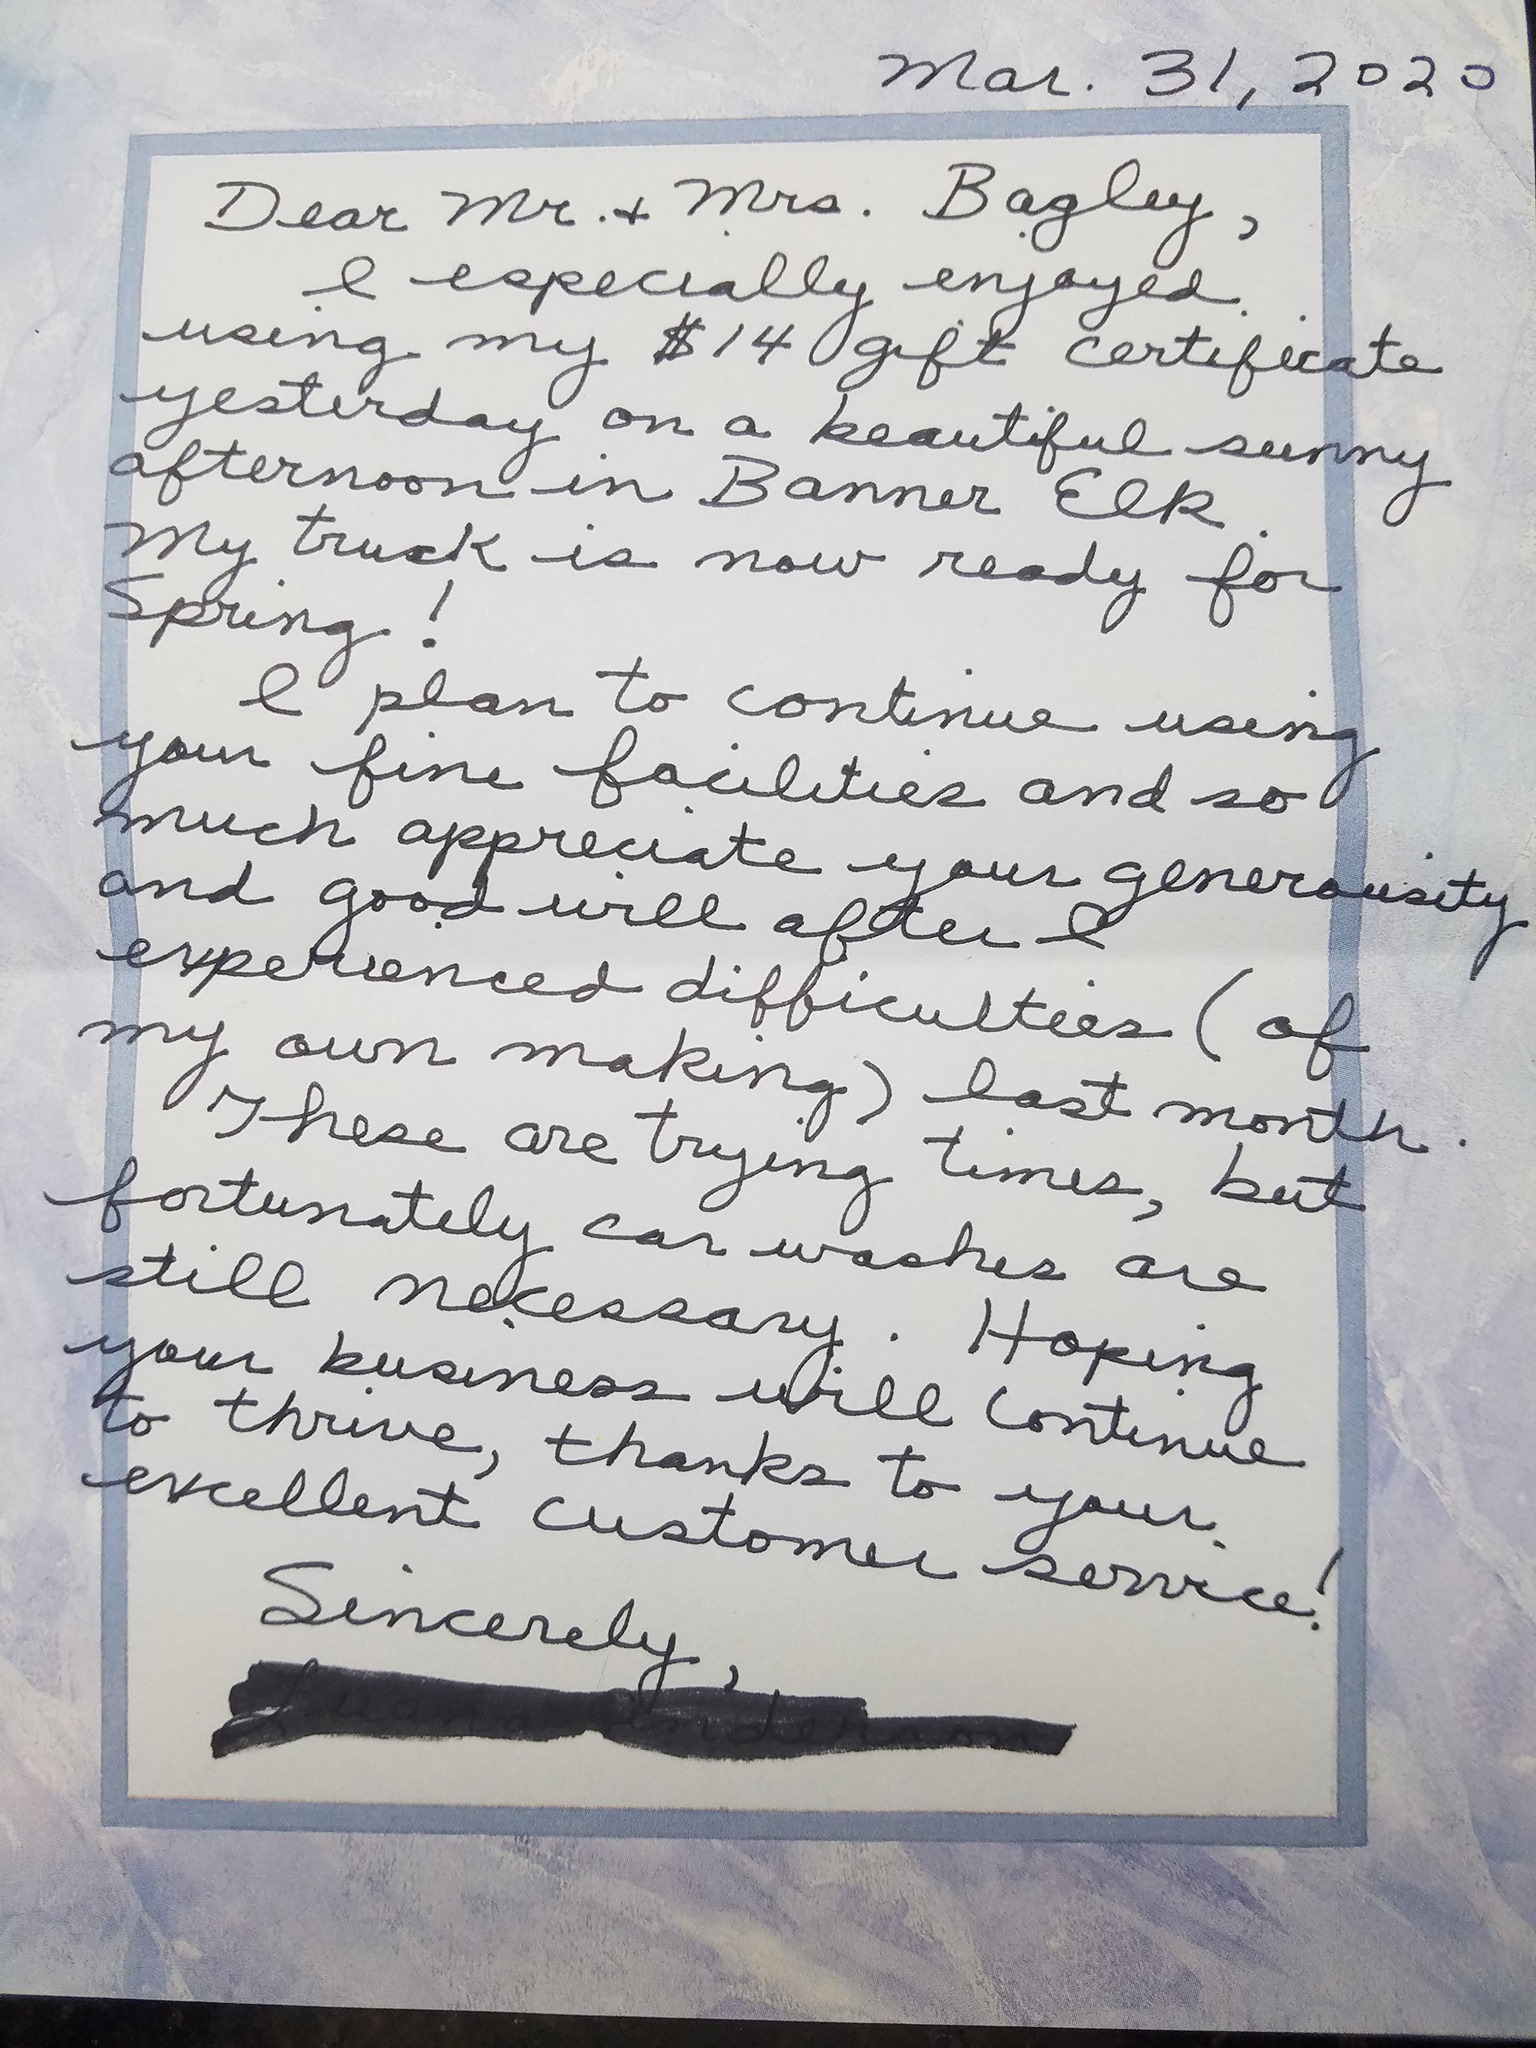 Mar. 31, 2020
Dear Mr. + Mrs. Bagley,
I especially enjoyed
using my $14 gift certificate
yesterday on a beautiful sunny
afternoon in Banner Elk.
My truck is now ready for
Spring!
I plan to continue using
your fine facilities and so
much appreciate your generousity
and good will after I
experienced difficulties (of
my own making) last month.
These are trying times, but
fortunately car washes are
still necessary. Hoping
your business will continue
to thrive, thanks to your
excellent customer service!
Sincerely,